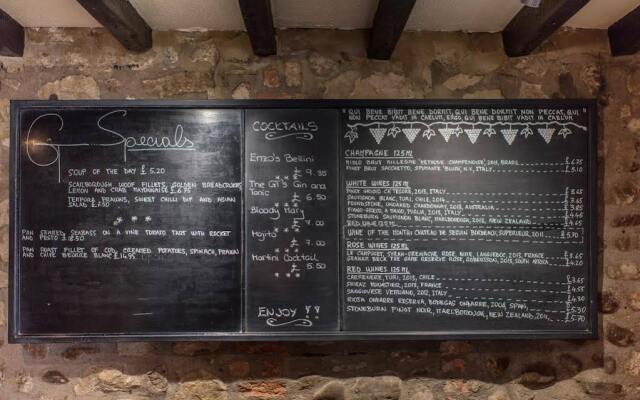 G Specials
SOUP OF THE DAY £ 5.20
SCARBOROUGH WOOF FILLETS, GOLDEN BREADCRUMBS
LEMON AND CRAB MAYONNAISE £6.75
TEMPURA PRAWNS, SWEET CHILLI DIP AND ASIAN
SALAD £7.50
PAN SEARED SEABASS ON A VINE TOMATO TART WITH ROCKET
AND PESTO
PAN ROAST FILLET OF COD, CREAMED POTATOES, SPINACH, PRAWN
AND CHIVE BEURRE BLANC £14.95
COCKTAILS
Enzo's Bellini
£ 9.35
The G1's Gin and
Tonic
£ 6.50
Bloody Mary
£ 7.00
Mojito
£ 7.00
Martini Cocktail
£ 8.50
ENJOY !!
" QUI BENE BIBIT BENE DORMIT, QUI BENE DORMIT NON PECCAT, QUI
NON PECCAT VADIT IN CAELUM, ERGO, QUI BENE BIBIT VADIT IN CAELUM "
CHAMPAGNE 125ML
PINOT BRUT SACCHETTO, SPUMANTE 'BLINK', N.V, ITALY. £5.10
WHITE WINES 125ML
PINOT 2013, ITALY
SAUVIGNON BLANC, TURI, CHILE, 2014 £3.65
2013, AUSTRALIA £3.85
PUGLIA, 2013, ITALY
STONEBURN SAUVIGNON BLANC, MARLBOROUGH, 2013, NEW ZEALAND
WINE OF THE MONTH CHATEAU DE SEUIN BORDEAUX SUPERIEUR, 2011 £5.70
ROSE WINES 125ML
LE CAMPUGET, SYRAH-GRENACHE, ROSE, NIME, LANGUEDOC, 2013, FRANCE £3.65
GRAHAM BECK THE GAME RESERVE ROSE, ROBERTSON, 2013, SOUTH AFRICA £4.20
RED WINES 125ML
CARMENERE, TURI, 2013, CHILE £3.65
SHIRAZ MOURISTIER, 2013, FRANCE £4.55
SANGIOVESE VERUCCHIO, 2012, ITALY £4.30
RIOJA ONDARRE RESERVA, BODEGAS ONDARRE, 2009, SPAIN £5.30
STONEBURN PINOT NOIR, MARLBOROUGH, NEW ZEALAND, 2011 £5.70